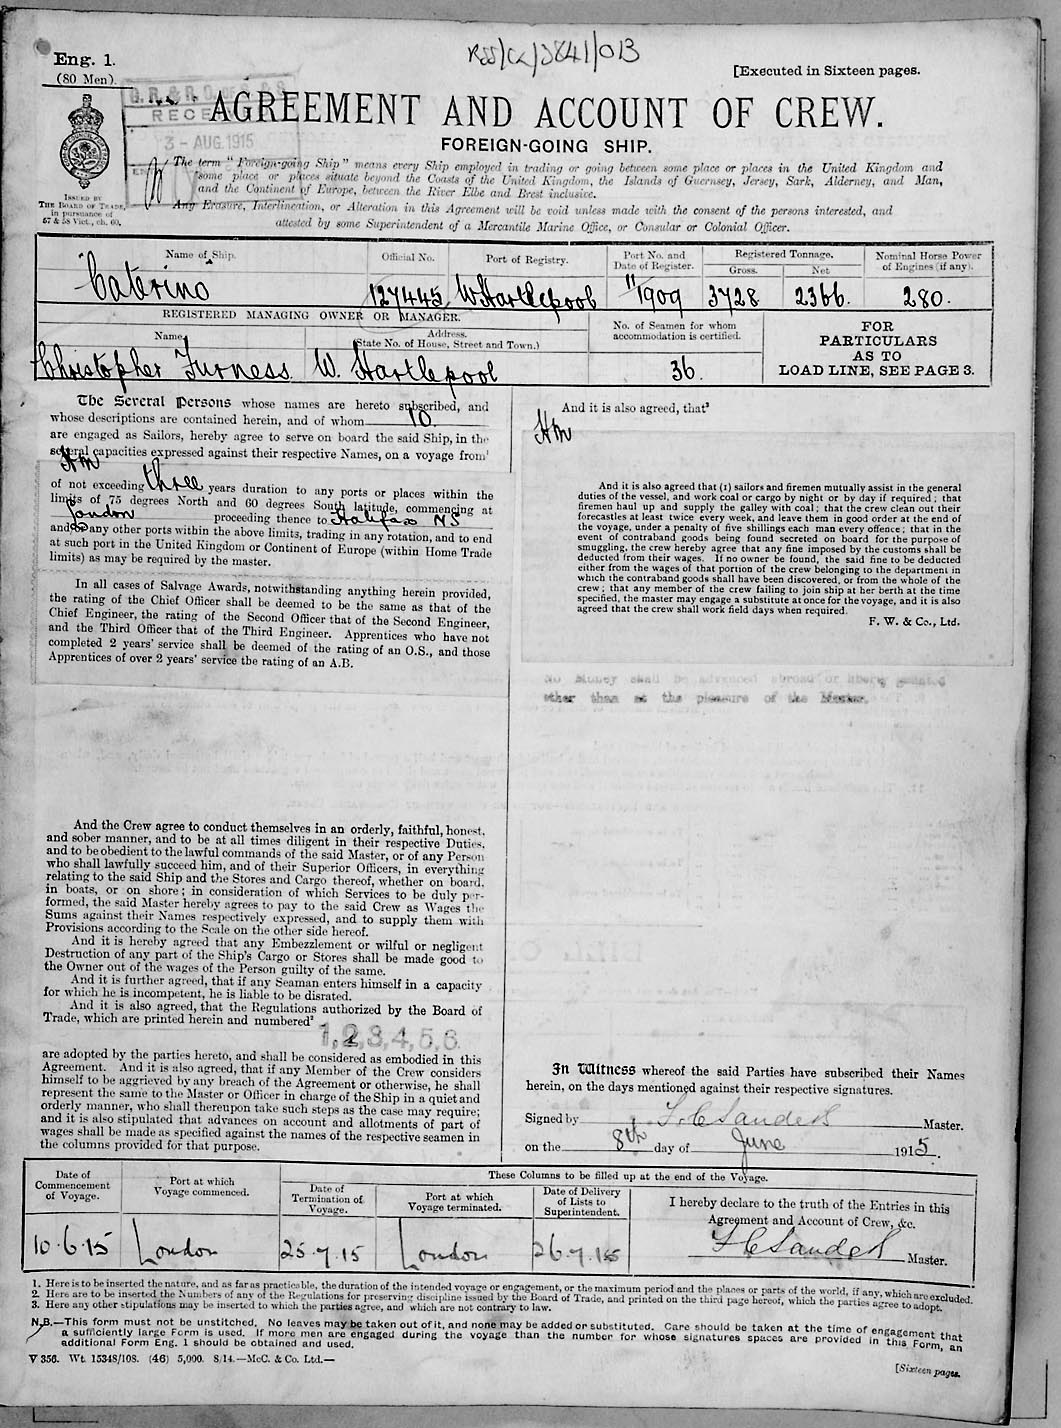 Eng. 1.
(80 Men).
[Executed in Sixteen pages.
RECE
3 - AUG. 1915
AGREEMENT AND ACCOUNT OF CREW.
FOREIGN-GOING SHIP.
ISSUED BY
THE BOARD OF TRADE,
in pursuance of
57 & 58 Vict., ch. 60.
The term "Foreign-going Ship" means every Ship employed in trading or going between some place or places in the United Kingdom and
some place or places situate beyond the Coasts of the United Kingdom, the Islands of Guernsey, Jersey, Sark, Alderney, and Man,
and the Continent of Europe, between the River Elbe and Brest inclusive.
Any Erasure, Interlineation, or Alteration in this Agreement will be void unless made with the consent of the persons interested, and
attested by some Superintendent of a Mercantile Marine Office, or Consular or Colonial Officer.
Name of Ship.
Official No.
Port of Registry.
Port No. and
Date of Register.
Registered Tonnage.
Gross.
Net
Nominal Horse Power
of Engines (if any).
Caterino
127445
W. Hartlepool
11/1909
3728
2366.
280.
REGISTERED MANAGING OWNER OR MANAGER.
Name
Address.
(State No. of House, Street and Town.)
No. of Seamen for whom
accommodation is certified.
FOR
PARTICULARS
AS TO
LOAD LINE, SEE PAGE 3.
Christopher Furness
W. Hartlepool
36.
The Several Persons whose names are hereto subscribed, and
whose descriptions are contained herein, and of whom 10.
are engaged as Sailors, hereby agree to serve on board the said Ship, in the
several capacities expressed against their respective Names, on a voyage from¹
of not exceeding three years duration to any ports or places within the
limits of 75 degrees North and 60 degrees South latitude, commencing at
London proceeding thence to Halifax NS
and/or any other ports within the above limits, trading in any rotation, and to end
at such port in the United Kingdom or Continent of Europe (within Home Trade
limits) as may be required by the master.
In all cases of Salvage Awards, notwithstanding anything herein provided,
the rating of the Chief Officer shall be deemed to be the same as that of the
Chief Engineer, the rating of the Second Officer that of the Second Engineer,
and the Third Officer that of the Third Engineer. Apprentices who have not
completed 2 years' service shall be deemed of the rating of an O.S., and those
Apprentices of over 2 years' service the rating of an A.B.
And the Crew agree to conduct themselves in an orderly, faithful, honest,
and sober manner, and to be at all times diligent in their respective Duties,
and to be obedient to the lawful commands of the said Master, or of any Person
who shall lawfully succeed him, and of their Superior Officers, in everything
relating to the said Ship and the Stores and Cargo thereof, whether on board,
in boats, or on shore; in consideration of which Services to be duly per-
formed, the said Master hereby agrees to pay to the said Crew as Wages the
Sums against their Names respectively expressed, and to supply them with
Provisions according to the Scale on the other side hereof.
And it is hereby agreed that any Embezzlement or wilful or negligent
Destruction of any part of the Ship's Cargo or Stores shall be made good to
the Owner out of the wages of the Person guilty of the same.
And it is further agreed, that if any Seaman enters himself in a capacity
for which he is incompetent, he is liable to be disrated.
And it is also agreed, that the Regulations authorized by the Board of
Trade, which are printed herein and numbered²
1,2,3,4,5,6.
are adopted by the parties hereto, and shall be considered as embodied in this
Agreement. And it is also agreed, that if any Member of the Crew considers
himself to be aggrieved by any breach of the Agreement or otherwise, he shall
represent the same to the Master or Officer in charge of the Ship in a quiet and
orderly manner, who shall thereupon take such steps as the case may require;
and it is also stipulated that advances on account and allotments of part of
wages shall be made as specified against the names of the respective seamen in
the columns provided for that purpose.
And it is also agreed, that³
And it is also agreed that (1) sailors and firemen mutually assist in the general
duties of the vessel, and work coal or cargo by night or by day if required; that
firemen haul up and supply the galley with coal; that the crew clean out their
forecastles at least twice every week, and leave them in good order at the end of
the voyage, under a penalty of five shillings each man every offence; that in the
event of contraband goods being found secreted on board for the purpose of
smuggling, the crew hereby agree that any fine imposed by the customs shall be
deducted from their wages. If no owner be found, the said fine to be deducted
either from the wages of that portion of the crew belonging to the department in
which the contraband goods shall have been discovered, or from the whole of the
crew; that any member of the crew failing to join ship at her berth at the time
specified, the master may engage a substitute at once for the voyage, and it is also
agreed that the crew shall work field days when required.
F. W. & Co., Ltd.
No Money shall be advanced abroad or liberty granted
other than at the pleasure of the Master.
In Witness whereof the said Parties have subscribed their Names
herein, on the days mentioned against their respective signatures.
Signed by Master.
on the 8th day of June 1915.
Date of
Commencement
of Voyage.
Port at which
Voyage commenced.
These Columns to be filled up at the end of the Voyage.
Date of
Termination of
Voyage.
Port at which
Voyage terminated.
Date of Delivery
of Lists to
Superintendent.
I hereby declare to the truth of the Entries in this
Agreement and Account of Crew, &c.
Master.
10.6.15
London
25.7.15
London
26.7.15
1. Here is to be inserted the nature, and as far as practicable, the duration of the intended voyage or engagement, or the maximum period and the places or parts of the world, if any, which are excluded.
2. Here are to be inserted the Numbers of any of the Regulations for preserving discipline issued by the Board of Trade, and printed on the third page hereof, which the parties agree to adopt.
3. Here any other stipulations may be inserted to which the parties agree, and which are not contrary to law.
N.B.—This form must not be unstitched. No leaves may be taken out of it, and none may be added or substituted. Care should be taken at the time of engagement that
a sufficiently large Form is used. If more men are engaged during the voyage than the number for whose signatures spaces are provided in this Form, an
additional Form Eng. 1 should be obtained and used.
V 356. Wt. 15348/108. (46) 5,000. 8/14.—McC. & Co. Ltd.—
[Sixteen pages.